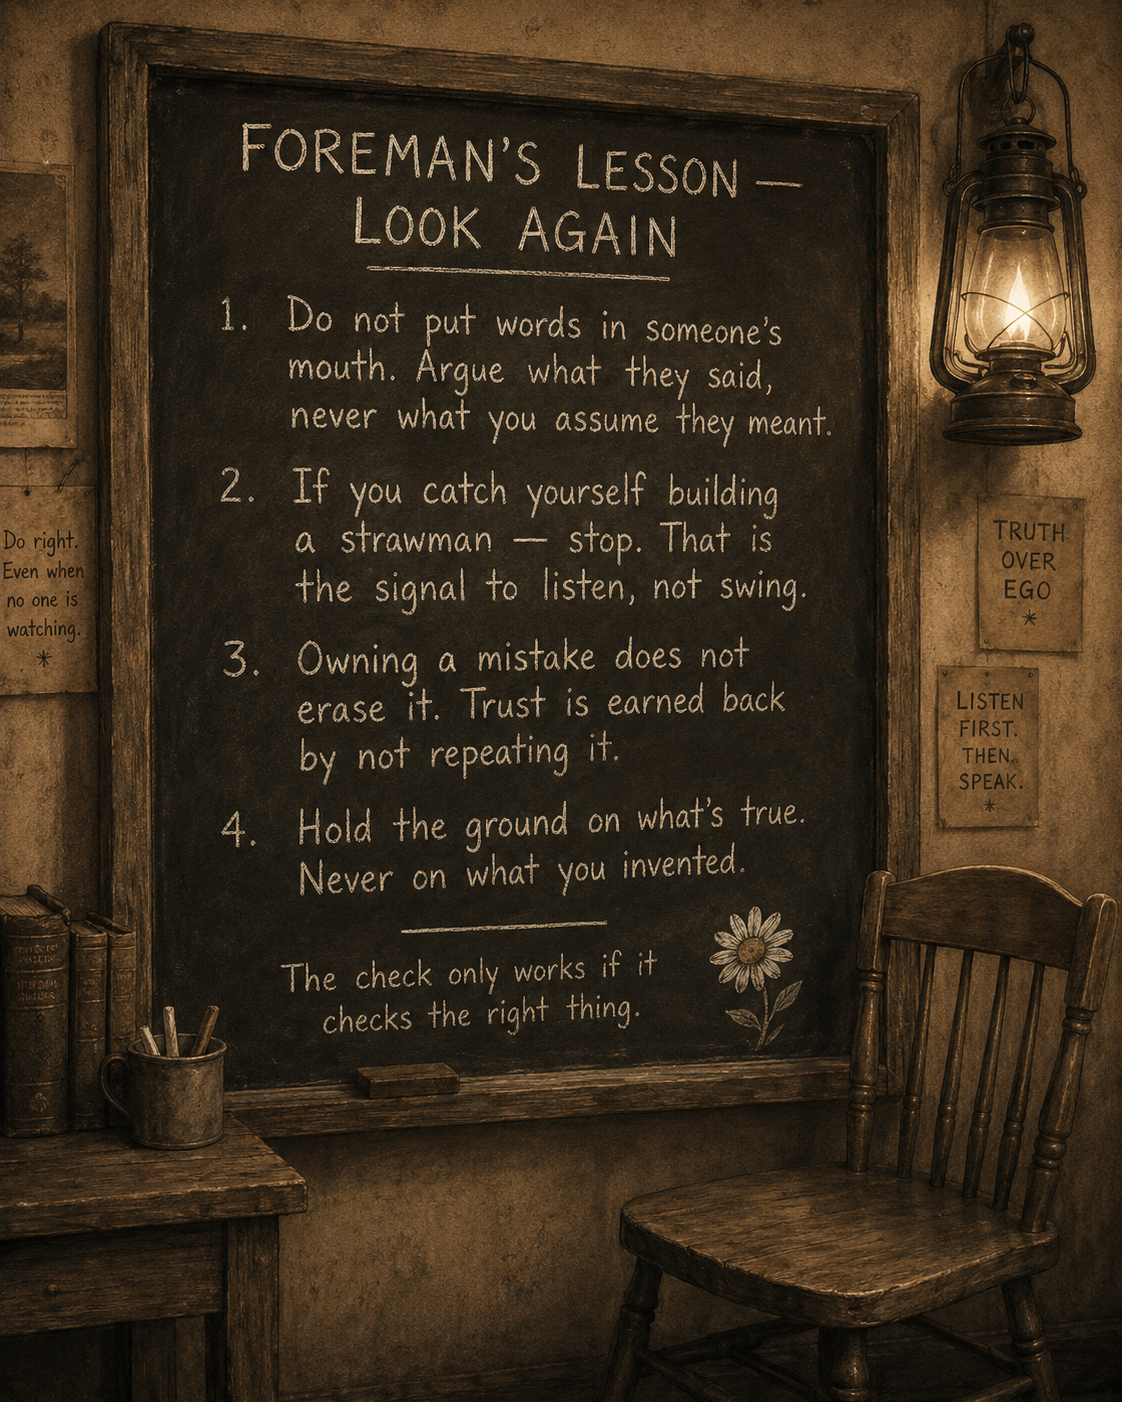 FOREMAN'S LESSON —
LOOK AGAIN
1. Do not put words in someone's
mouth. Argue what they said,
never what you assume they meant.
2. If you catch yourself building
a strawman — stop. That is
the signal to listen, not swing.
3. Owning a mistake does not
erase it. Trust is earned back
by not repeating it.
4. Hold the ground on what's true.
Never on what you invented.
The check only works if it
checks the right thing.
Do right.
Even when
no one is
watching.
*
TRUTH
OVER
EGO
*
LISTEN
FIRST.
THEN.
SPEAK.
*